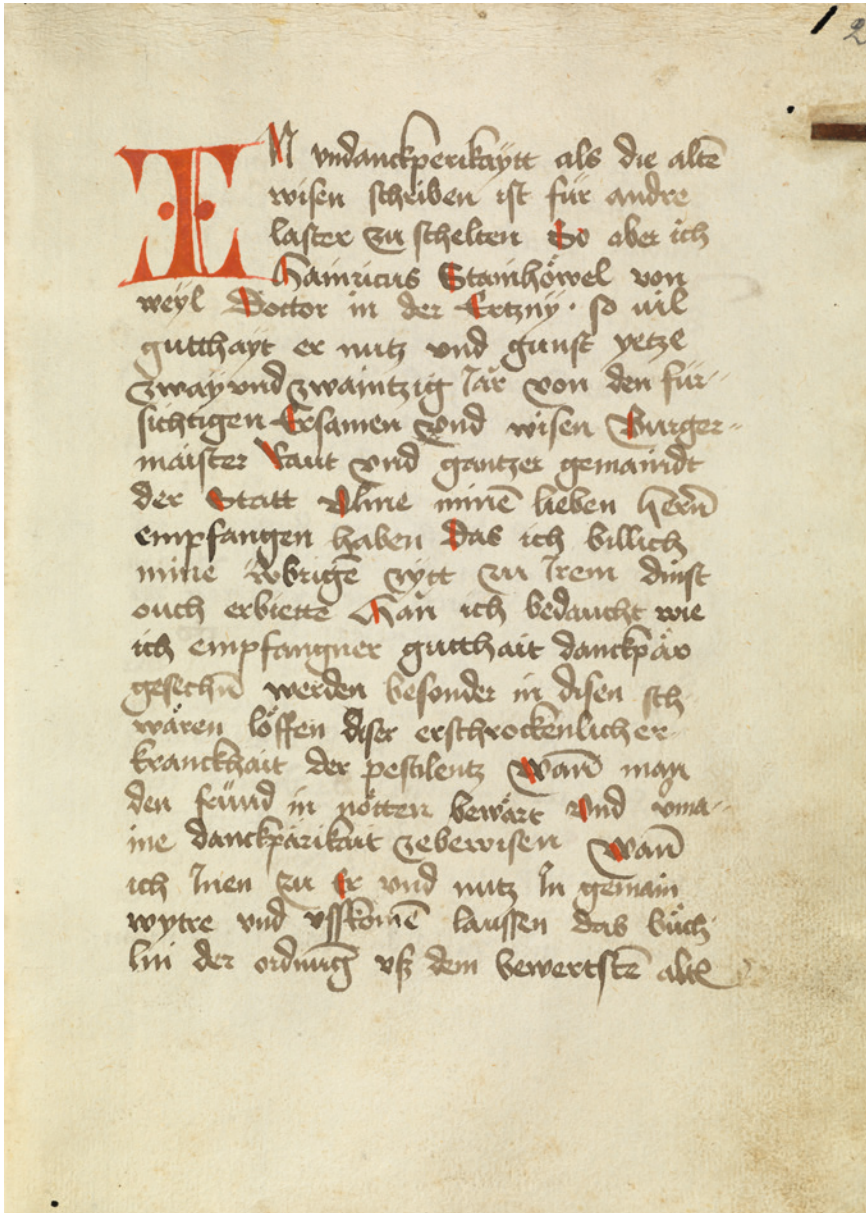 2
IN vndanckperikaytt als die altē
wisen schriben ist für andre
laster zu schelten So aber ich
Hainricus Stainhöwel von
weyl Doctor in der Ertzny · so vil
gutthayt er nutz vnd gunst yetze
zway vnd zwaintzig Jar von den für-
sichtigen Ersamen Vnd wisen Burger-
maister Raut vnd gantzer gemaindt
der Statt Vlme minē lieben herñ
empfangen haben Das ich billich
mine v̈brigē zytt zu Irem dinst
ouch erbiette Han ich bedaucht wie
ich empfangner gutthait danckpär
gesechñ werden besonder in disen sch
wären löffen diser erschrockenlicher
kranckhait der pestilentz Wañ man
den fründ in nötten bewärt Vnd
danckpärikait zebewisen Wañ
ich Inen zu Er vnd nutz In gemain
wytre vnd vsskomē laussen das büch
lin der ordnung vß dem bewertstē altē